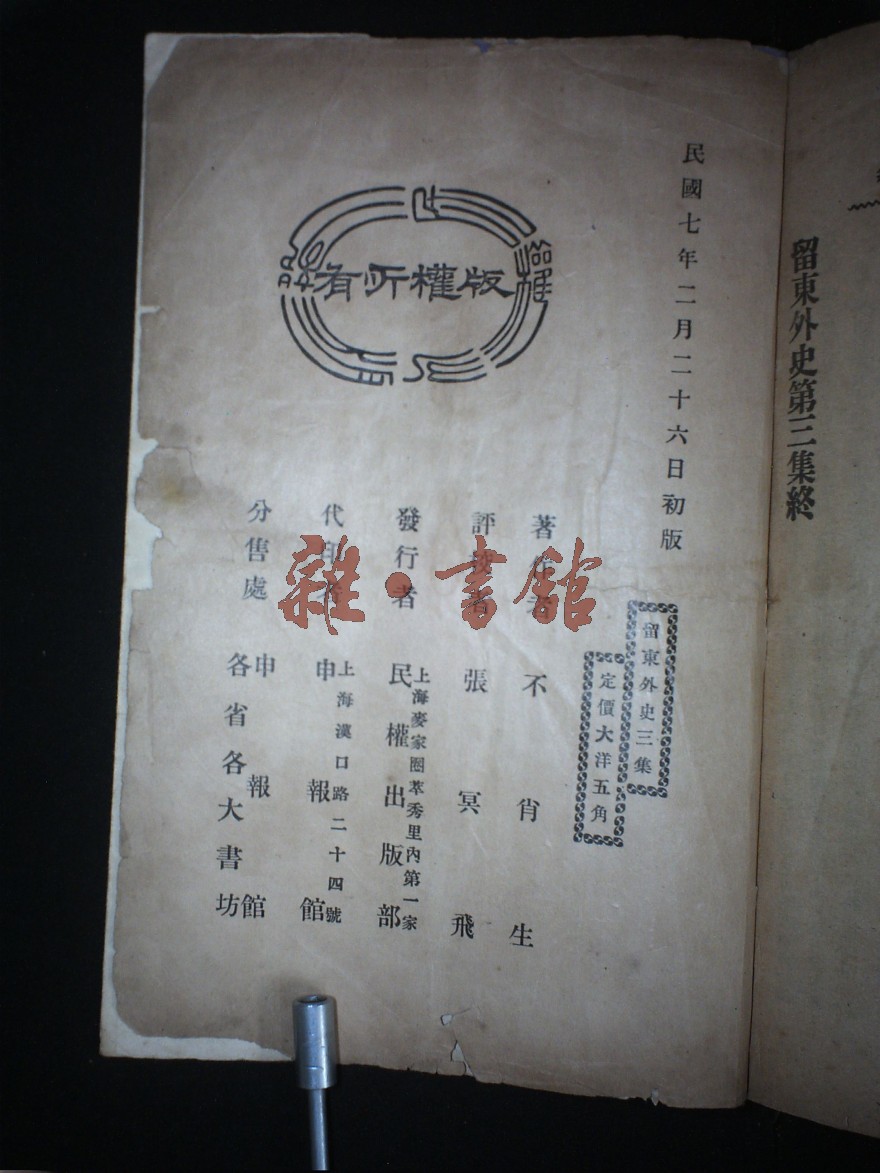 留東外史第三集終
民國七年二月二十六日初版
留東外史三集
定價大洋五角
版權所有
著作者 不肖生
評發者 張冥飛
發行者 上海麥家圈萃秀里內第一家
民權出版部
代印者 上海漢口路二十四號
申報館
分售處 申報館
各省各大書坊
雜·書館